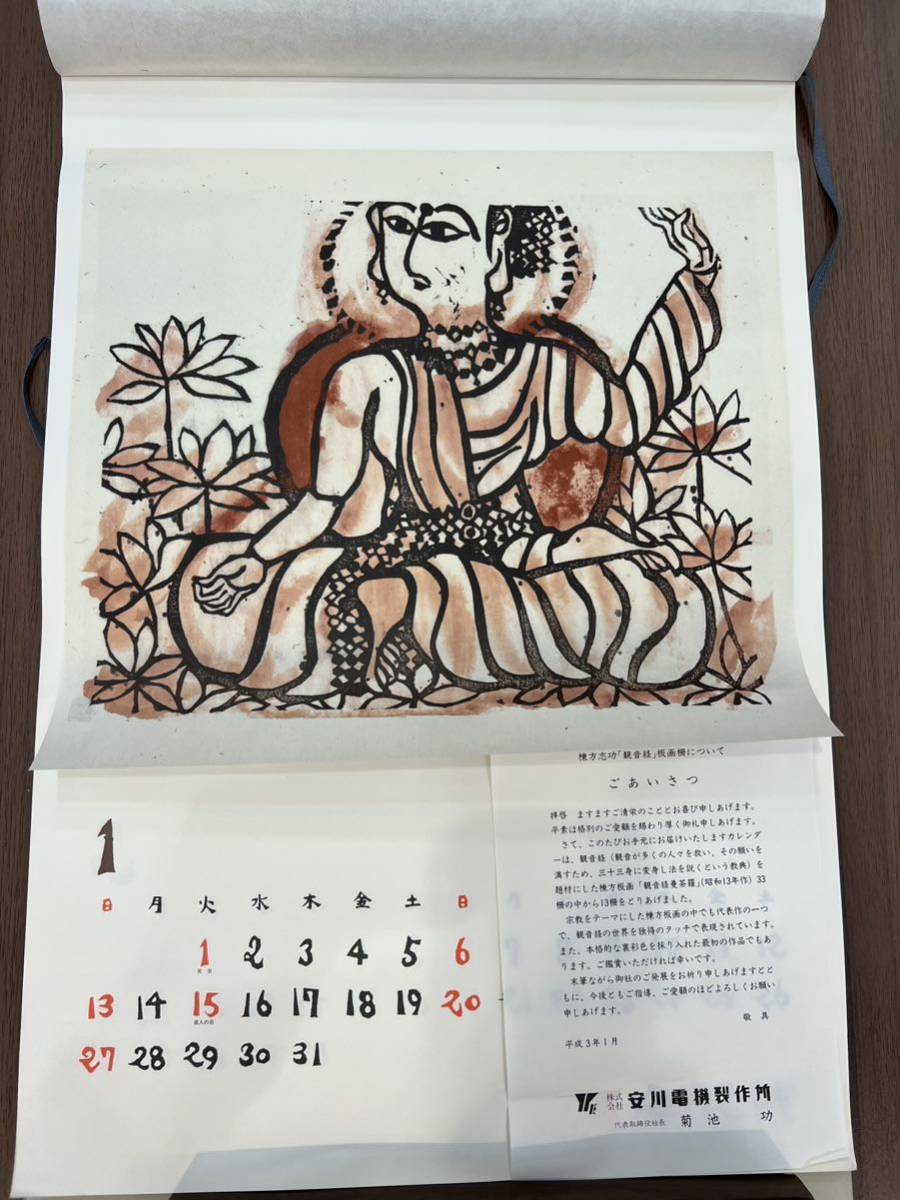 1
日 月 火 水 木 金 土 日
1 2 3 4 5 6
元日
13 14 15 16 17 18 19 20
成人の日
27 28 29 30 31
棟方志功「観音経」板画柵について
ごあいさつ
拝啓 ますますご清栄のこととお喜び申しあげます。
平素は格別のご愛顧を賜わり厚く御礼申しあげます。
さて、このたびお手元にお届けいたしますカレンダ
ーは、観音経（観音が多くの人々を救い、その願いを
満すため、三十三身に変身し法を説くという教典）を
題材にした棟方板画「観音経曼荼羅」(昭和13年作) 33
柵の中から13柵をとりあげました。
宗教をテーマにした棟方板画の中でも代表作の一つ
で、観音経の世界を独得のタッチで表現されています。
また、本格的な裏彩色を採り入れた最初の作品でもあ
ります。ご鑑賞いただければ幸いです。
末筆ながら御社のご発展をお祈り申しあげますとと
もに、今後ともご指導、ご愛顧のほどよろしくお願い
申しあげます。
敬具
平成3年1月
株式会社 安川電機製作所
代表取締役社長 菊池 功